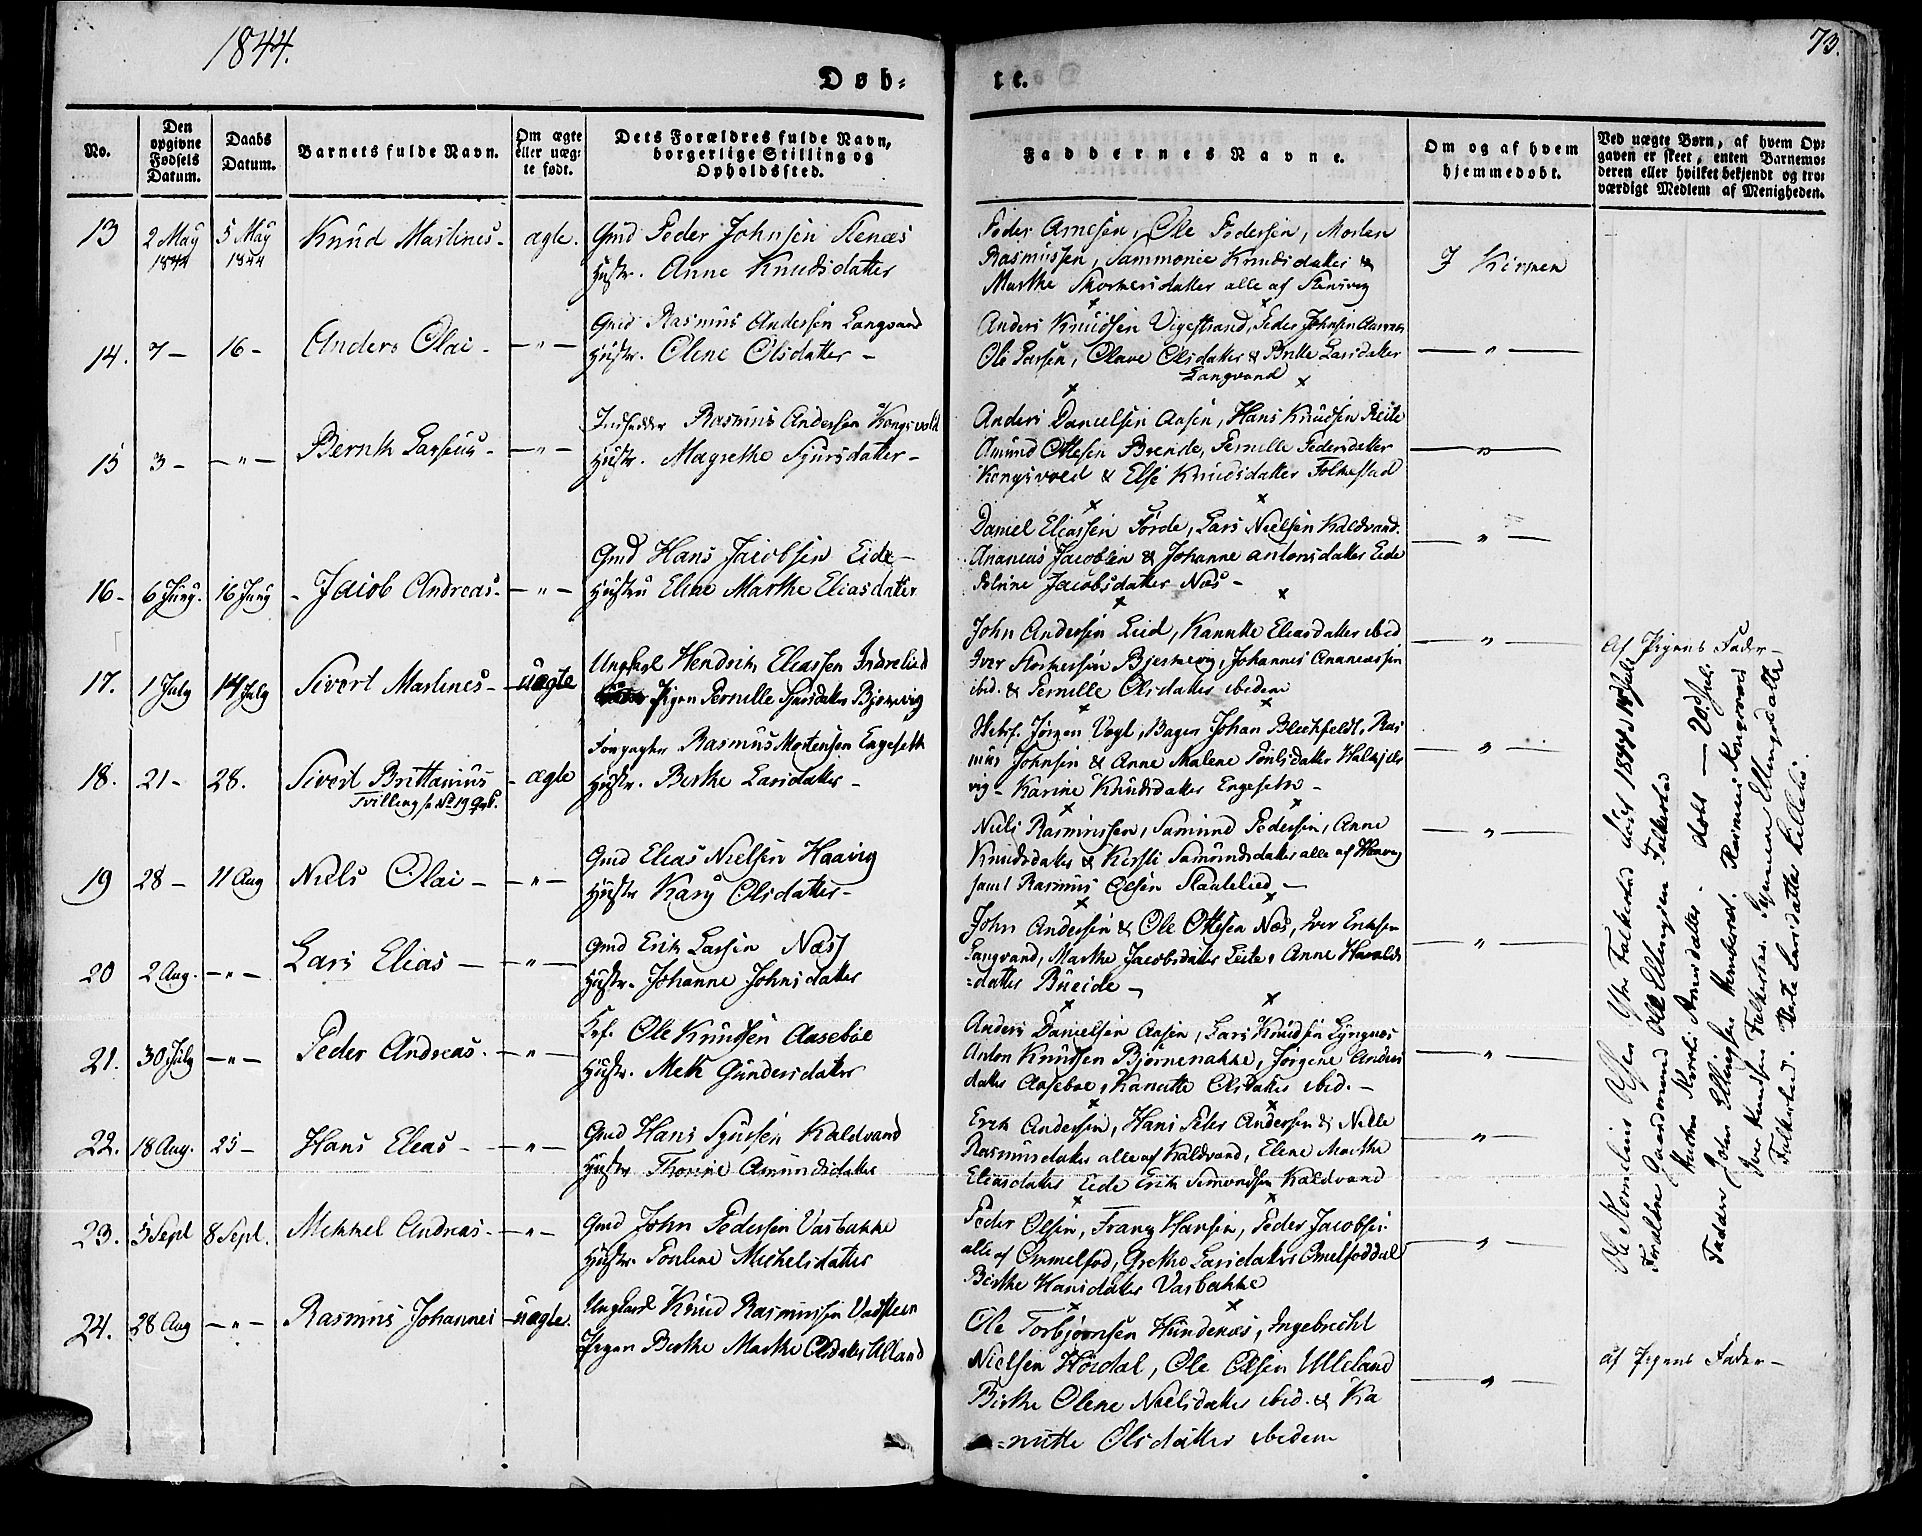 1844.
73.
Døb-
te.
No.
Den opgivne Fødsels Datum.
Daabs Datum.
Barnets fulde Navn.
Om ægte eller uæg-te født.
Dets Forældres fulde Navn, borgerlige Stilling og Opholdsted.
Faddernes Navne.
Om og af hvem hjemmedøbt.
Ved uægte Børn, af hvem Op-gaven er skeet, enten Barnemo-deren eller hvilket bekjendt og tro-værdigt Medlem af Menigheden.
13 2 May 1844 5 May 1844 Knud Martines - ægte. Gmd Peder Johnsen
Hustr. Anne Knudsdatter
Peder Arnesen, Ole Pedersen, Morten
Rasmussen, Sammonie Knudsdatter &
Marthe datter alle af
I Kirken
14. 7 - 16 - Anders Olai - - " - Gmd Rasmus Andersen Langvand
Hustr. Oline Olsdatter -
Anders Knudsen Vigestrand, Peder Johnsen
Ole Larsen, Olave Olsdatter & Britte Larsdatter
Langvand
- " -
15 3 - - " - Bernth Lassius - - " - Inderster Rasmus Andersen Kongsvold
Hustr. Magrethe Sjursdatter -
Anders Danielsen Aasen, Hans Knudsen Reite
Amund Ottesen Brende, Pernille Pedersdatter
Kongsvold & Else Knudsdatter Folkestad
- " -
16 - 6 Juny. 16 Juny - Jacob Andreas - - " - Gmd Hans Jacobsen Eide -
Hustru Eline Marthe Eliasdatter
Daniel Eliassen Førde, Lars Nielsen Kaldvand.
Ananias Jacobsen & Johanne Antonsdatter Eide
Jacobsdatter Næs -
- " -
17. 1 July 14 July Sivert Martines - uægte Ungkarl Hendrik Eliassen Indrelied
Pigen Pernille Sjursdatter Bjørnevig
John Andersen Lied, Kanutte Eliasdatter ibid
Iver Bjørnevig, Johannes Ananiassen
ibid. & Pernille Olsdatter ibidem
- " -
Af Pigens Fader -
18. 21 - 28. Sivert Brittanius - ægte
Tvilling
Rasmus Mortensen Engeseth
Hustr. Berthe Larsdatter -
Jørgen Vogt, Bager Johan Blechfeldt, Ras
mus Johnsen & Anne Malene datter
vig - Karine Knudsdatter Engeseth -
- " -
19 28 - 11 Aug Niels Olai - - " - Gmd Elias Nielsen Haavig
Hustr Kary Olsdatter -
Niels Rasmussen, Samund Pedersen, Anne
Knudsdatter & Kirsti Samundsdatter alle af Haavig
samt Rasmus Olsen -
- " -
20 2 Aug. - " - Lars Elias - - " - Gmd Erik Larsen Næss
Hustr. Johanne Johnsdatter
John Andersen & Ole Ottesen Næs, Iver Eriksen
Langvand, Marthe Jacobsdatter Eide, Anne Haralds
=datter Bueide -
- " -
21. 30 July - " - Peder Andreas - - " - Ole Knudsen Aasebøe
Hustr. Mette Gundersdatter
Anders Danielsen Aasen, Lars Knudsen Lyngnes
Anton Knudsen Bjørnenakke, Jørgine Anders
datter Aasebøe, Kanutte Olsdatter ibid. -
- " -
22. 18 Aug. 25 - Hans Elias - - " - Gmd Hans Sjursen Kaldvand
Hustr Thorine Amundsdatter
Erik Andersen, Hans Peder Andersen & Nille
Rasmusdatter alle af Kaldvand, Elene Marthe
Eliasdatter Eide Erik Simondsen Kaldvand
- " -
23. 5 Sept 8 Sept. Mikkel Andreas - - " - Gmd John Pedersen Vasbakke
Hustr. Pauline Michelsdatter
Peder Olsen, Franz Hansen, Peder Jacobsen
alle af Ommelfod, Grethe Larsdatter
Berthe Hansdatter Vasbakke
- " -
24. 28 Aug - " - Rasmus Johannes - uægte. Ungkarl Knud Rasmussen Vadsteen
Pigen Berthe Marthe Olsdatter Ulland
Ole Torbjørnsen Hundenæs, Ingebricht
Nielsen Hordal, Ole Olsen Ulleland
Berthe Olene Nielsdatter ibid. & Ka
=nutte Olsdatter ibidem
- " -
af Pigens Fader -
Ole Kornelius Olsen Ytre Folkestad født 1844 d 14 Juli
Forældre Gaardmand Ole Ellingsen Folkestad
Hustru datter. døbt - 20d Juli
Faddere John Ellingsen Rasmus Kongsvold
Iver Knudsen Folkestad. datter
Folkestad. Larsdatter